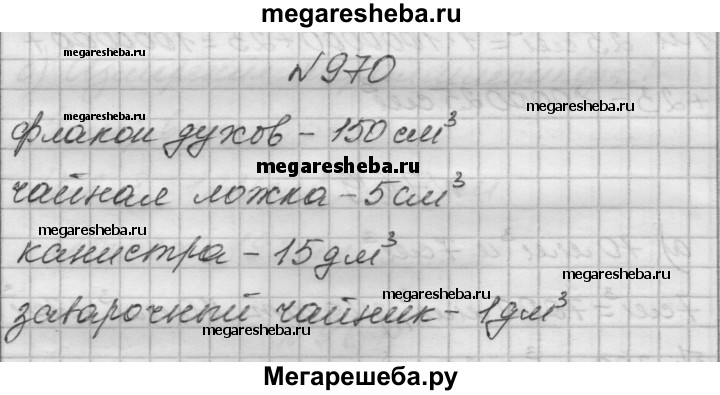 megaresheba.ru
megaresheba.ru
№970
megaresheba.ru
флакон духов - 150 см³
megaresheba.ru
чайная ложка - 5 см³
megaresheba.ru
канистра - 15 дм³
megaresheba.ru
megaresheba.ru
заварочный чайник - 1 дм³
megaresheba.ru
Мегарешеба.ру